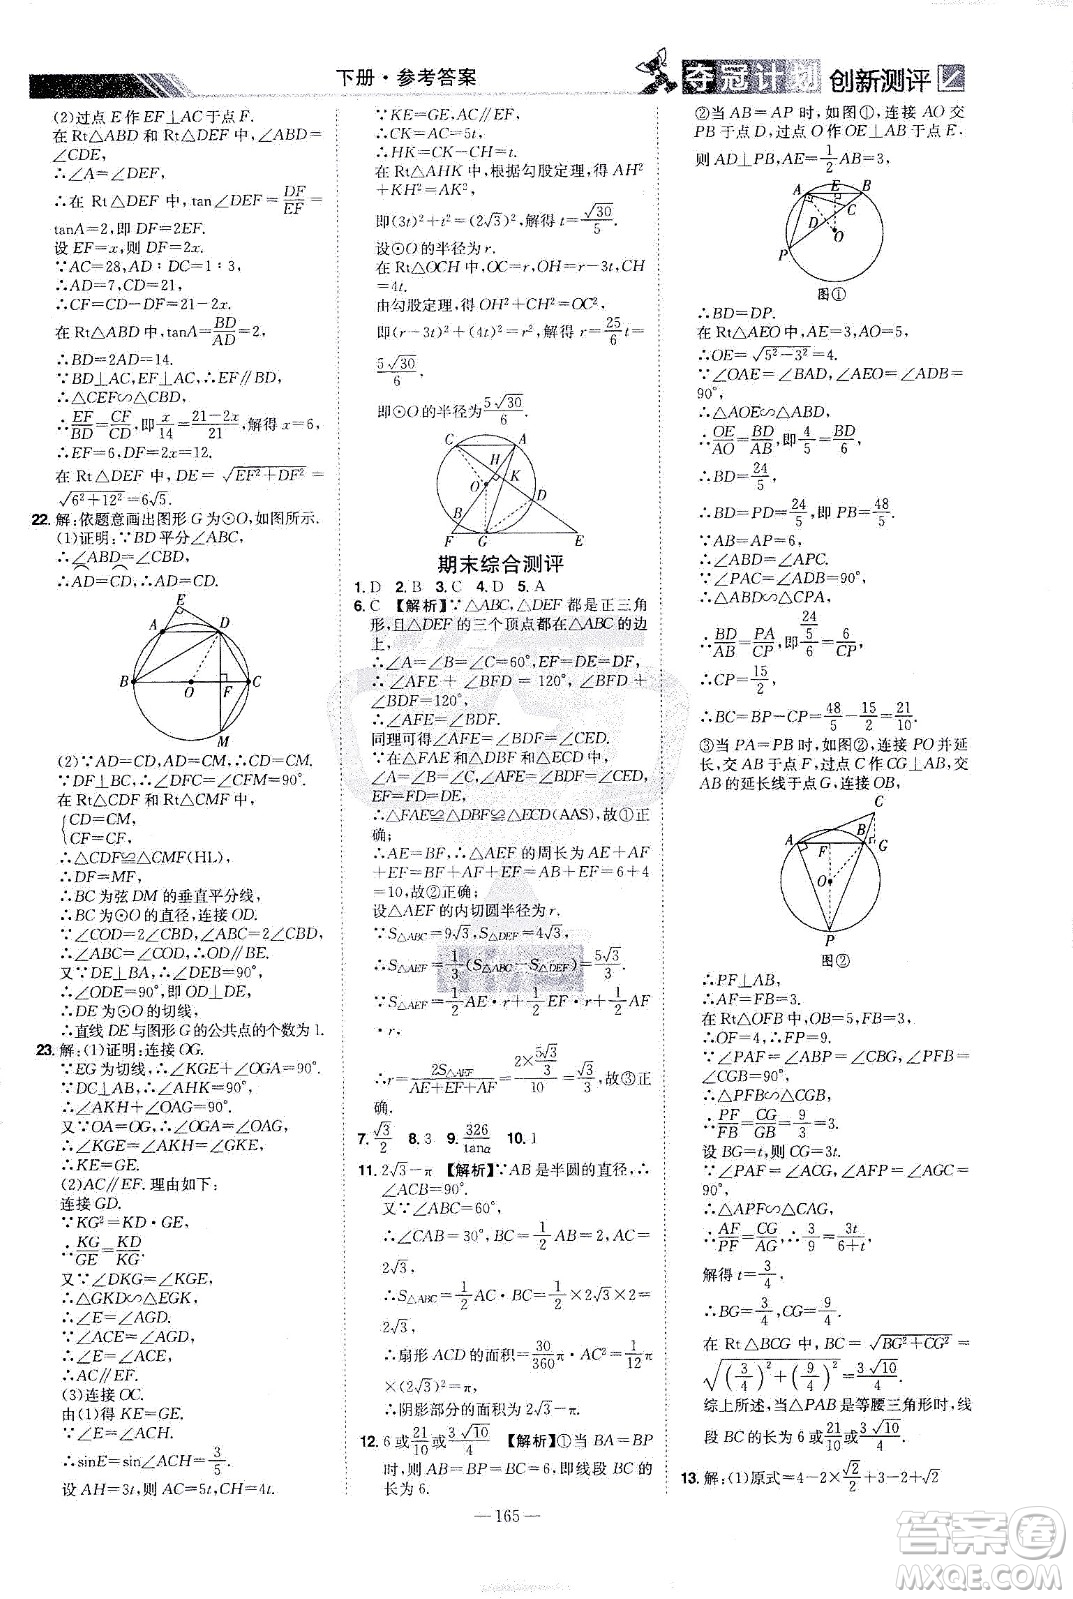 下册·参考答案
夺冠计划 创新测评
(2)过点E作EF⊥AC于点F.
在Rt△ABD和Rt△ABC中,∠ABD=
∠CDE,
∴∠A=∠DEF,
∴在 Rt△DEF 中,tan∠DEF=DF/EF=
tanA=2,即DF=2EF.
设EF=x,则DF=2x.
∵AC=28,AD∶DC=1∶3,
∴AD=7,CD=21,
∴CF=CD-DF=21-2x.
在Rt△ABD中,tanA=BD/AD=2,
∴BD=2AD=14.
∵BD⊥AC,EF⊥AC,∴EF∥BD,
∴△CEF∽△CBD,
∴EF/BD=CF/CD,即x/14=(21-2x)/21,解得x=6,
∴EF=6,DF=2x=12.
在 Rt△DEF 中,DE=√(EF²+DF²)=
√(6²+12²)=6√5.
22.解:依题意画出图形G为⊙O,如图所示.
(1)证明:∵BD平分∠ABC,
∴∠ABD=∠CBD,
∴⌒AD=⌒CD,∴AD=CD.
E
A D
B O F C
M
(2)∵AD=CD,AD=CM,∴CD=CM.
∵DF⊥BC,∴∠DFC=∠CFM=90°.
在Rt△CDF和Rt△CMF中,
{CD=CM,
CF=CF,
∴△CDF≌△CMF(HL),
∴DF=MF,
∴BC为弦DM的垂直平分线,
∴BC为⊙O的直径,连接OD.
∵∠COD=2∠CBD,∠ABC=2∠CBD,
∴∠ABC=∠COD,∴OD∥BE.
又∵DE⊥BA,∴∠DEB=90°,
∴∠ODE=90°,即OD⊥DE,
∴DE为⊙O的切线,
∴直线DE与图形G的公共点的个数为1.
23.解:(1)证明:连接OG.
∵EG为切线,∴∠KGE+∠OGA=90°.
∵DC⊥AB,∴∠AHK=90°,
∴∠AKH+∠OAG=90°.
又∵OA=OG,∴∠OGA=∠OAG,
∴∠KGE=∠AKH=∠GKE,
∴KE=GE.
(2)AC∥EF. 理由如下:
连接GD.
∵KG²=KD·GE,
∴KG/GE=KD/KG.
又∵∠DKG=∠KGE,
∴△GKD∽△EGK,
∴∠E=∠AGD.
又∵∠ACE=∠AGD,
∴∠E=∠ACE,
∴AC∥EF.
(3)连接OC.
由(1)得KE=GE.
∵∠E=∠ACH,
∴sinE=sin∠ACH=3/5.
设AH=3t,则AC=5t,CH=4t.
∵KE=GE,AC∥EF,
∴CK=AC=5t,
∴HK=CK-CH=t.
在Rt△AHK中,根据勾股定理得AH²
+HK²=AK²,
即(3t)²+t²=(2√3)²,解得t=√30/5.
设⊙O的半径为r.
在Rt△OCH中,OC=r,OH=r-3t,CH
=4t.
由勾股定理,得OH²+CH²=OC²,
即(r-3t)²+(4t)²=r²,解得r=25/6t=
5√30/6.
即⊙O的半径为5√30/6
C A
H
O K
D
B
F G E
期末综合测评
1.D 2.B 3.C 4.D 5.A
6.C 【解析】∵△ABC,△DEF都是正三角
形,且△DEF的三个顶点都在△ABC的边
上,
∴∠A=∠B=∠C=60°,EF=DE=DF,
∴∠AFE+∠BFD=120°,∠BFD+
∠BDF=120°,
∴∠AFE=∠BDF.
同理可得∠AFE=∠BDF=∠CED.
在△FAE和△DBF和△ECD中,
∠A=∠B=∠C,∠AFE=∠BDF=∠CED,
EF=FD=DE,
∴△FAE≌△DBF≌△ECD(AAS),故①正确;
∴AE=BF,∴△AEF的周长为AE+AF
+EF=BF+AF+EF=AB+EF=6+4
=10,故②正确;
设△AEF的内切圆半径为r.
∵S△ABC=9√3,S△DEF=4√3,
∴S△AEF=1/3(S△ABC-S△DEF)=5√3/3.
∵S△AEF=1/2AE·r+1/2EF·r+1/2AF
·r,
∴r=2S△AEF/(AE+EF+AF)=(2×5√3/3)/10=√3/3,故③正确.
7.√3/2 8.3 9.326/tanα 10.1
11.2√3-π 【解析】∵AB是半圆的直径,∴
∠ACB=90°.
又∵∠ABC=60°,
∴∠CAB=30°,BC=1/2AB=2,AC=
2√3.
∴S△ABC=1/2AC·BC=1/2×2√3×2=
2√3,
∴扇形ACD的面积=30/360π·AC²=1/12π
×(2√3)²=π,
∴阴影部分的面积为2√3-π.
12.6或21/10或3√10/2 【解析】①当BA=BP
时,则AB=BP=BC=6,即线段BC的
长为6.
②当AB=AP时,如图①,连接AO交
PB于点D,过点O作OE⊥AB于点E.
则AD⊥PB,AE=1/2AB=3,
A E B
C
D
O
P
图①
∴BD=DP.
在Rt△AEO中,AE=3,AO=5,
∴OE=√(5²-3²)=4.
∵∠OAE=∠BAD,∠AEO=∠ADB=
90°,
∴△AOE∽△ABD,
∴OE/AO=BD/AB,即4/5=BD/6,
∴BD=24/5,
∴BD=PD=24/5,即PB=48/5.
∵AB=AP=6,
∴∠ABD=∠APC.
∵∠PAC=∠ADB=90°,
∴△ABD∽△CPA,
∴BD/AB=PA/CP,即24/5/6=6/CP,
∴CP=15/2,
∴BC=BP-CP=48/5-15/2=21/10.
③当PA=PB时,如图②,连接PO并延
长,交AB于点F,过点C作CG⊥AB,交
AB的延长线于点G,连接OB.
C
A B
F G
O
P
图②
∴PF⊥AB,
∴AF=FB=3.
在Rt△OFB中,OB=5,FB=3,
∴OF=4,∴FP=9.
∵∠PAF=∠ABP=∠CBG,∠PFB=
∠CGB=90°,
∴△PFB∽△CGB,
∴PF/FB=CG/GB=9/3=3.
设BG=t,则CG=3t.
∵∠PAF=∠ACG,∠AFP=∠AGC=
90°,
∴△APF∽△CAG,
∴AF/PF=CG/AG,∴3/9=3t/(6+t),
解得t=3/4,
∴BG=3/4,CG=9/4.
在 Rt△BCG 中,BC=√(BG²+CG²)=
√((3/4)²+(9/4)²)=3√10/4.
综上所述,当△PAB是等腰三角形时,线
段BC的长为6或21/10或3√10/4.
13.解:(1)原式=4-2×√2/2+3-2+√2
—165—
答案圈
MXQE.COM